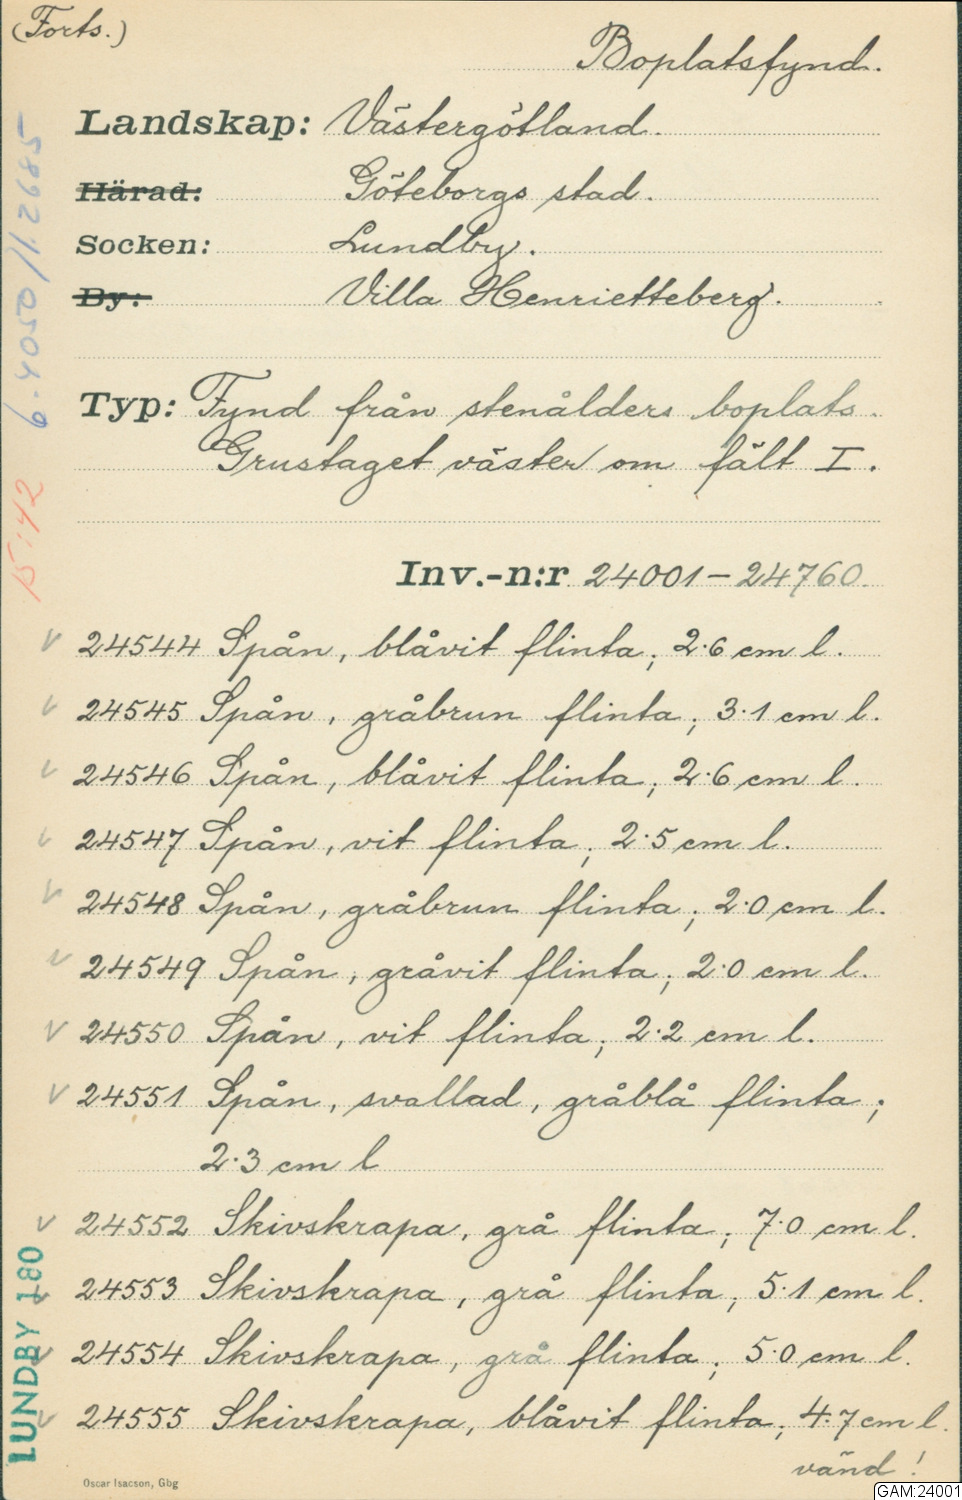 (Forts.)
Boplatsfynd.
Landskap: Västergötland.
Härad: Göteborgs stad.
Socken: Lundby.
By: Villa Henrietteberg.
Typ: Fynd från stenålders boplats.
Grustaget väster om fält I.
Inv.-n:r 24001-24760
24544 Spån, blåvit flinta; 2.6 cm l.
24545 Spån, gråbrun flinta; 3.1 cm l.
24546 Spån, blåvit flinta; 2.6 cm l.
24547 Spån, vit flinta; 2.5 cm l.
24548 Spån, gråbrun flinta; 2.0 cm l.
24549 Spån, gråvit flinta; 2.0 cm l.
24550 Spån, vit flinta; 2.2 cm l.
24551 Spån, svallad, gråblå flinta;
2.3 cm l
24552 Skivskrapa, grå flinta; 7.0 cm l.
24553 Skivskrapa, grå flinta; 5.1 cm l.
24554 Skivskrapa, grå flinta; 5.0 cm l.
24555 Skivskrapa, blåvit flinta; 4.7 cm l.
vänd!
Oscar Isacson, Gbg
GAM:24001
6.4050/1.2685
15:42
LUNDBY 180